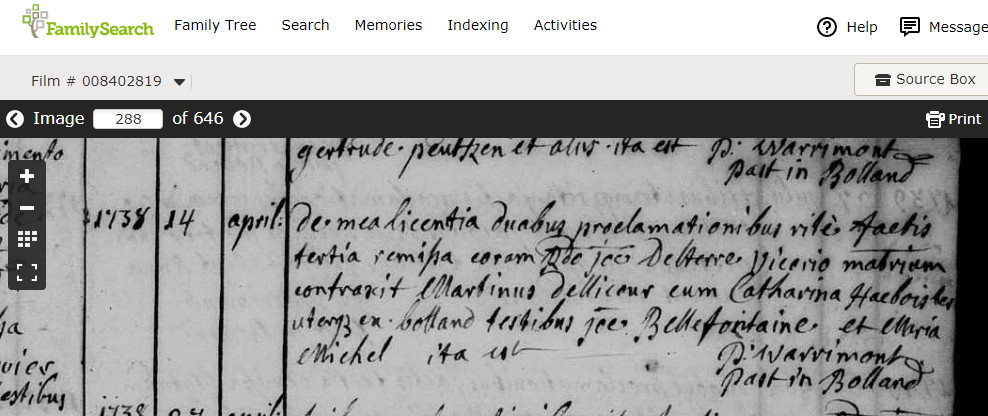 FamilySearch
Family Tree Search Memories Indexing Activities
Help Message
Film # 008402819
Source Box
Image 288 of 646
Print
imento
gertrude peutzen et aliis ita est P: Warrimont
Past in Bolland
1738 14 april: de mea licentia duabus proclamationibus ritè factis
tertia remissa coram Rdo jce Delterre vicerio matrium
contraxit Martinus Delliceur cum Catharina
uterqz ex bolland testibus jce Bellefontaine et Maria
Michel ita est P: Warrimont
Past in Bolland
estibus
1738 april: